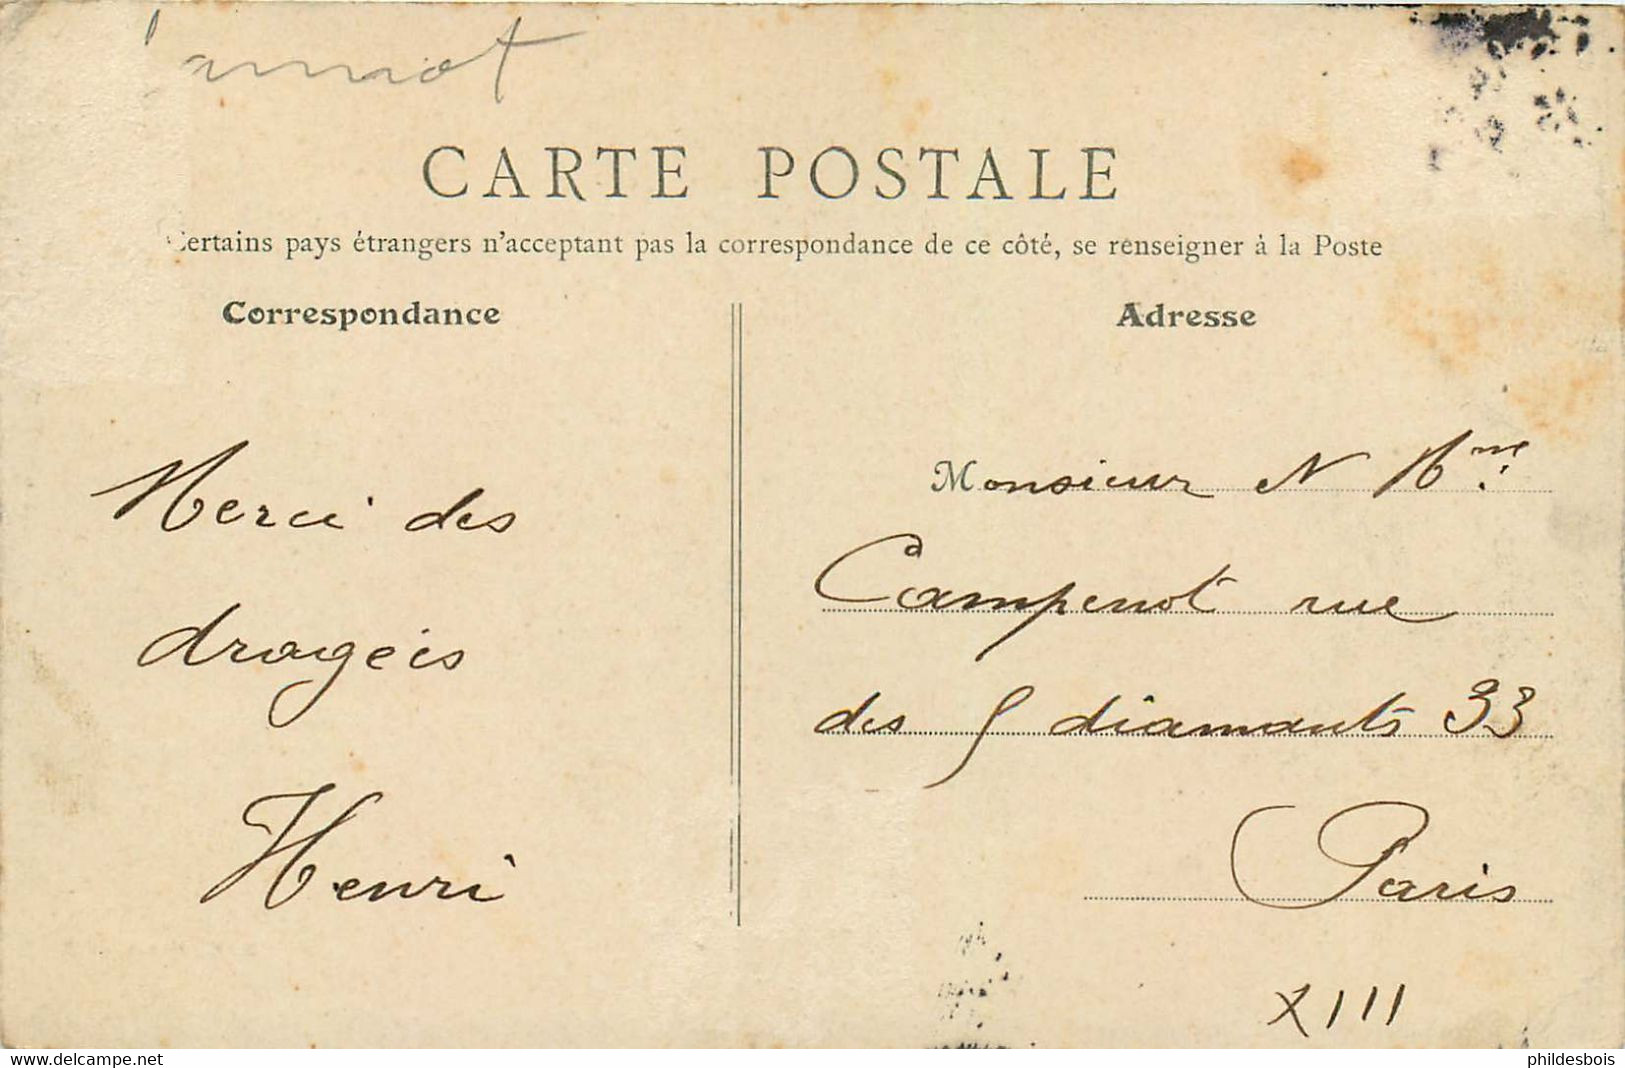 CARTE POSTALE
Certains pays étrangers n'acceptant pas la correspondance de ce côté, se renseigner à la Poste
Correspondance
Merci des
dragées
Henri
Adresse
Monsieur
Campenot rue
des 5 diamants 33
Paris
XIII
delcampe.net
phildesbois